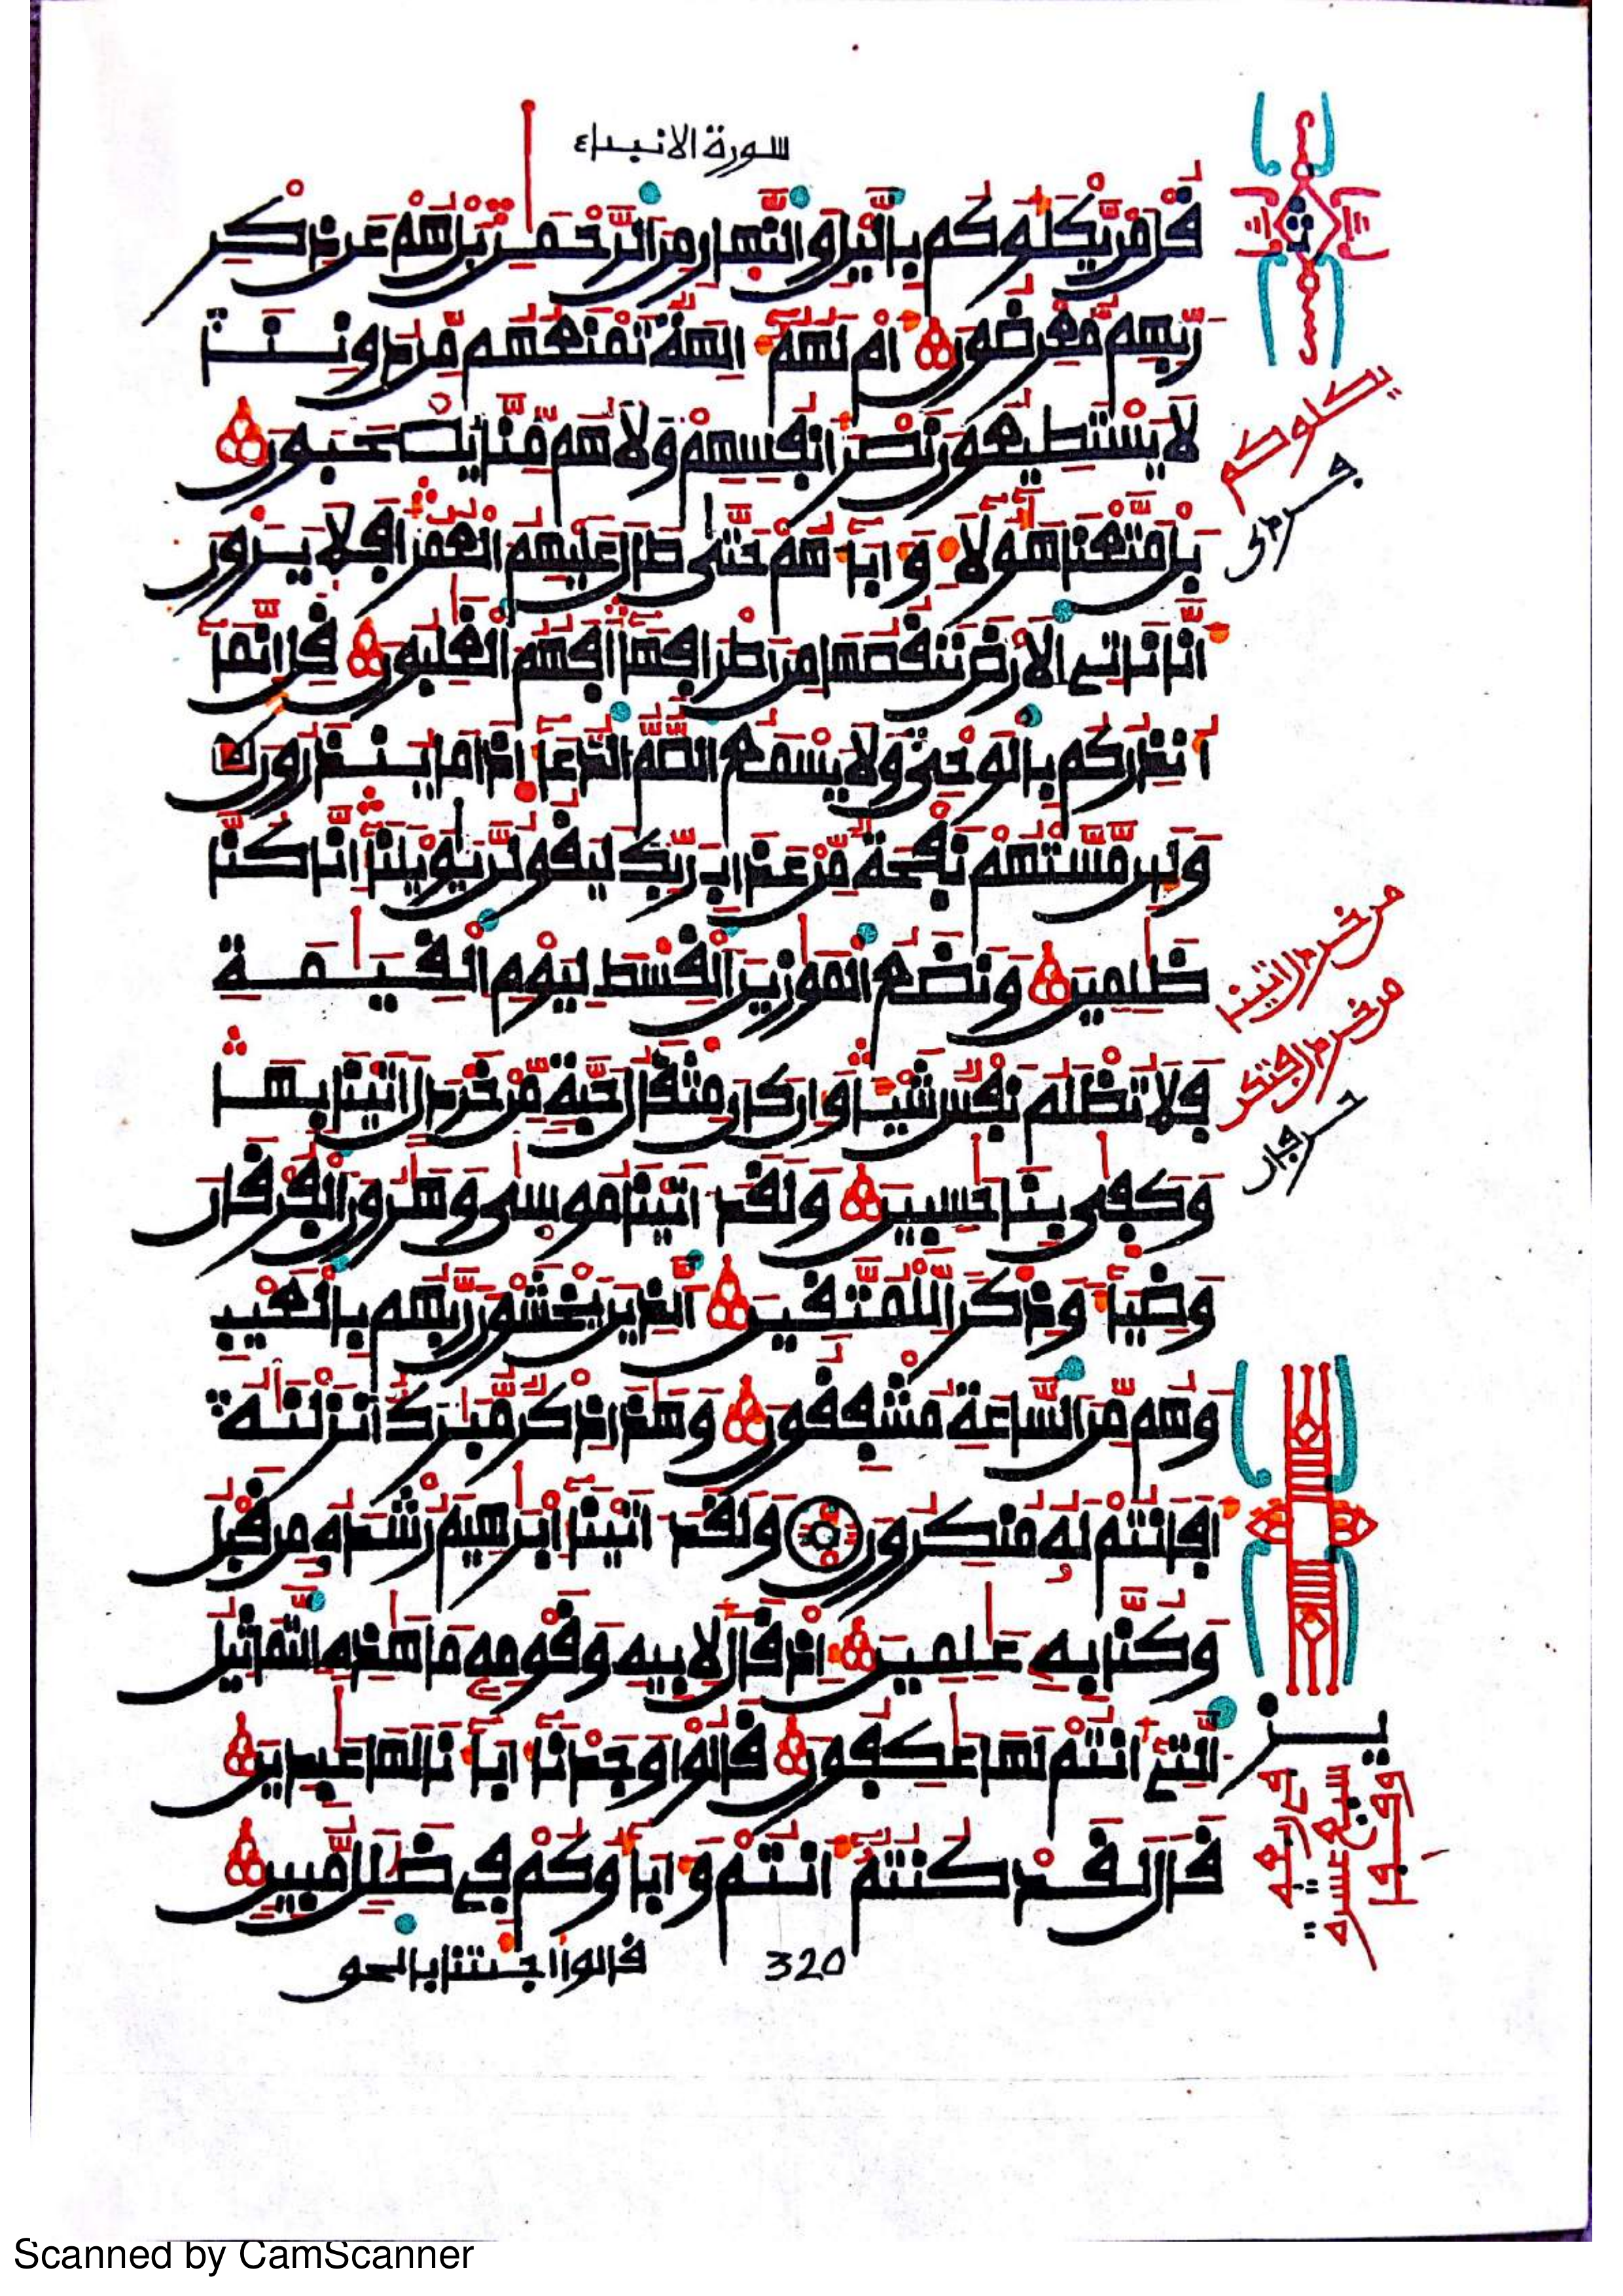 سورة الانبياء
قل من يكلؤكم باليل والنهار من الرحمن بل هم عن ذكر
ربهم معرضون ام لهم ءالهة تمنعهم من دوننا
لا يستطيعون نصر انفسهم ولا هم منا يصحبون
بل متعنا هؤلاء وءاباءهم حتى طال عليهم العمر افلا يرون
انا ناتي الارض ننقصها من اطرافها افهم الغلبون قل انما
انذركم بالوحي ولا يسمع الصم الدعاء اذا ما ينذرون
ولين مستهم نفحة من عذاب ربك ليقولن يويلنا انا كنا
ظلمين ونضع الموزين القسط ليوم القيمة
فلا تظلم نفس شيئا وان كان مثقال حبة من خردل اتينا بها
وكفى بنا حسبين ولقد ءاتينا موسى وهرون الفرقان
وضياء وذكرا للمتقين الذين يخشون ربهم بالغيب
وهم من الساعة مشفقون وهذا ذكر مبرك انزلنه
افانتم له منكرون ولقد ءاتينا ابرهيم رشده من قبل
وكنا به علمين اذ قال لابيه وقومه ما هذه التماثيل
التي انتم لها عكفون قالوا وجدنا ءاباءنا لها عبدين
قال لقد كنتم انتم وءاباؤكم في ضلل مبين
320
قالوا اجئتنا بالحق